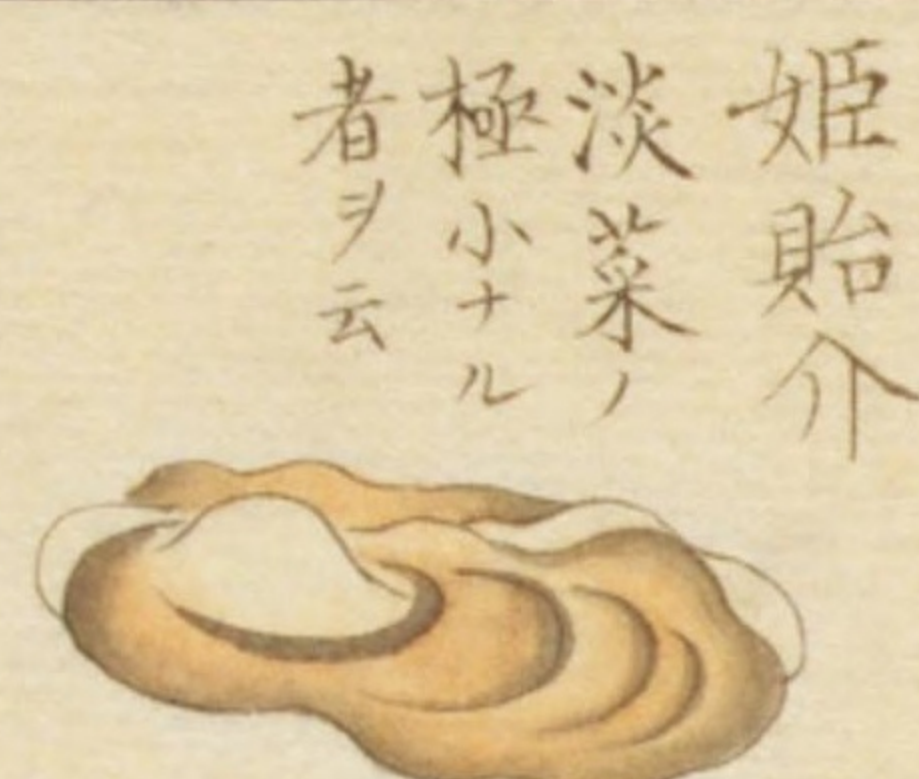 姫貽介
淡菜ノ
極小ナル
者ヲ云